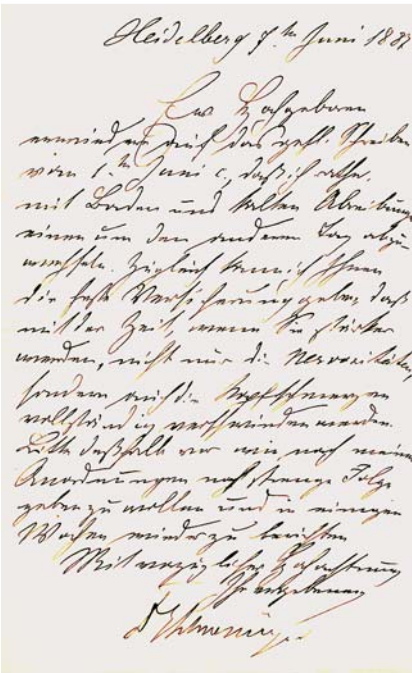 Heidelberg 7ten Juni 1887
Ew Hochgeboren
erwiedere auf das gefl. Schreiben
vom 1ten Juni c., daß ich rathe,
mit Baden und kalten Abreibung
einen um den anderen Tag abzu-
wechseln. Zugleich kann ich Ihnen
die feste Versicherung geben, daß
mit der Zeit, wenn Sie stärker
werden, nicht nur die Nervosität
sondern auch die Kopfschmerzen
vollständig verschwinden werden.
Bitte deßhalb vor wie nach meinen
Anordnungen noch strenge Folge
geben zu wollen und in einigen
Wochen wieder zu berichten
Mit vorzüglicher Hochachtung
Ihr ergebener